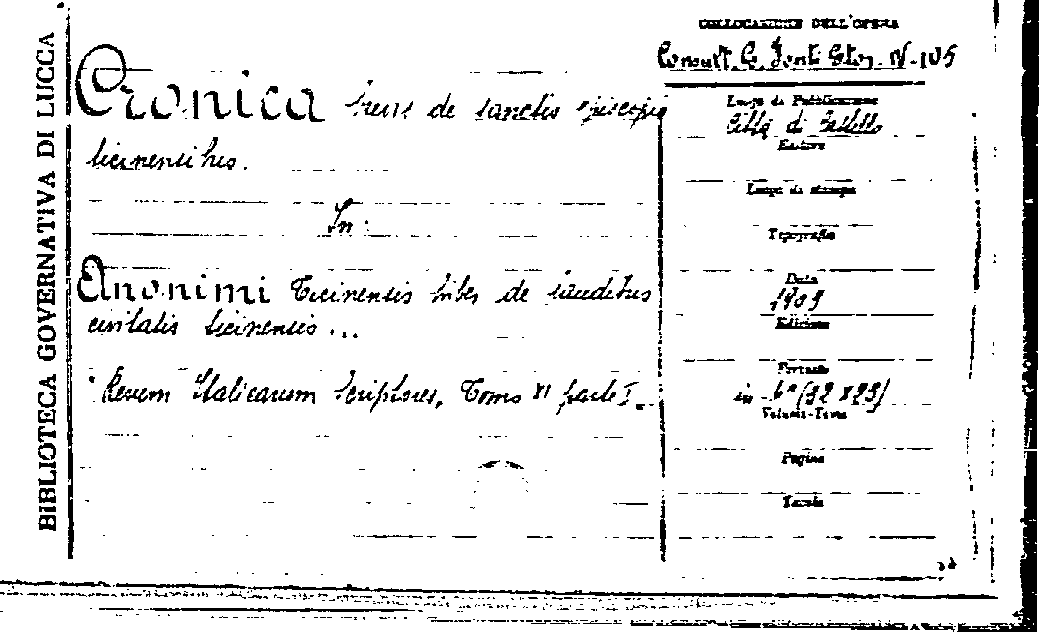 BIBLIOTECA GOVERNATIVA DI LUCCA
Cronica brevis de sanctis episcopis
ticinensibus.
In:
Anonimi Ticinensis liber de laudibus
civitatis ticinensis...
Rerum Italicarum Scriptores, Tomo XI parte I.
COLLOCAZIONE DELL'OPERA
Consult. C. Fonti Stor. IV-105
Luogo di Pubblicazione
Città di Castello
Editore
Luogo di stampa
Tipografia
Data
1903
Edizione
Formato
in-4° (32x23)
Volume-Tomo
Pagine
Tavole